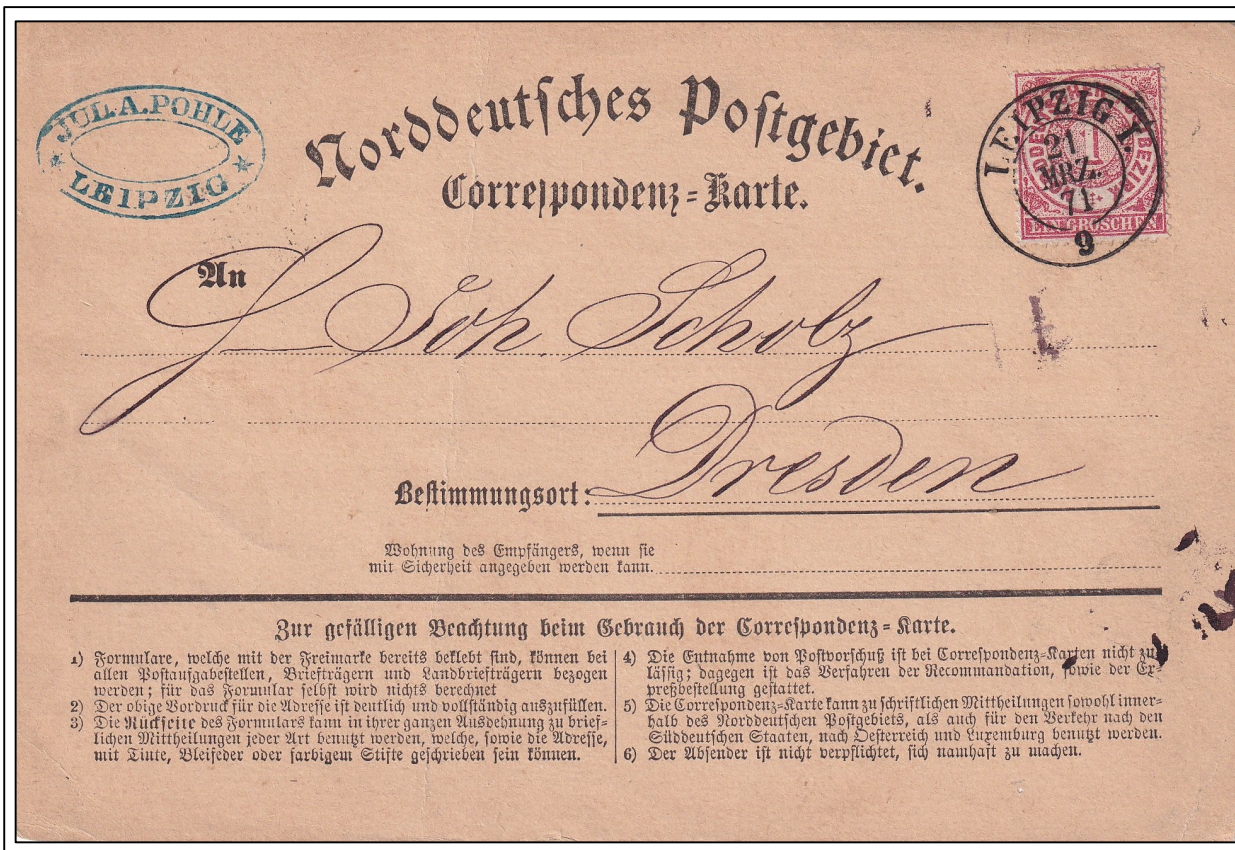 JUL. A. POHLE
LEIPZIG
Norddeutsches Postgebiet.
Correspondenz-Karte.
LEIPZIG I.
21
MRZ.
71
9
1
BEZIRK
EIN GROSCHEN
An
Joh. Scholz
Dresden
Bestimmungsort:
Wohnung des Empfängers, wenn sie
mit Sicherheit angegeben werden kann.
Zur gefälligen Beachtung beim Gebrauch der Correspondenz-Karte.
1) Formulare, welche mit der Freimarke bereits beklebt sind, können bei
allen Postaufgabestellen, Briefträgern und Landbriefträgern bezogen
werden; für das Formular selbst wird nichts berechnet
2) Der obige Vordruck für die Adresse ist deutlich und vollständig auszufüllen.
3) Die Rückseite des Formulars kann in ihrer ganzen Ausdehnung zu brief-
lichen Mittheilungen jeder Art benutzt werden, welche, sowie die Adresse,
mit Tinte, Bleifeder oder farbigem Stifte geschrieben sein können.
4) Die Entnahme von Postvorschuß ist bei Correspondenz-Karten nicht zu-
lässig; dagegen ist das Verfahren der Recommandation, sowie der Ex-
preßbestellung gestattet.
5) Die Correspondenz-Karte kann zu schriftlichen Mittheilungen sowohl inner-
halb des Norddeutschen Postgebiets, als auch für den Verkehr nach den
Süddeutschen Staaten, nach Oesterreich und Luxemburg benutzt werden.
6) Der Absender ist nicht verpflichtet, sich namhaft zu machen.